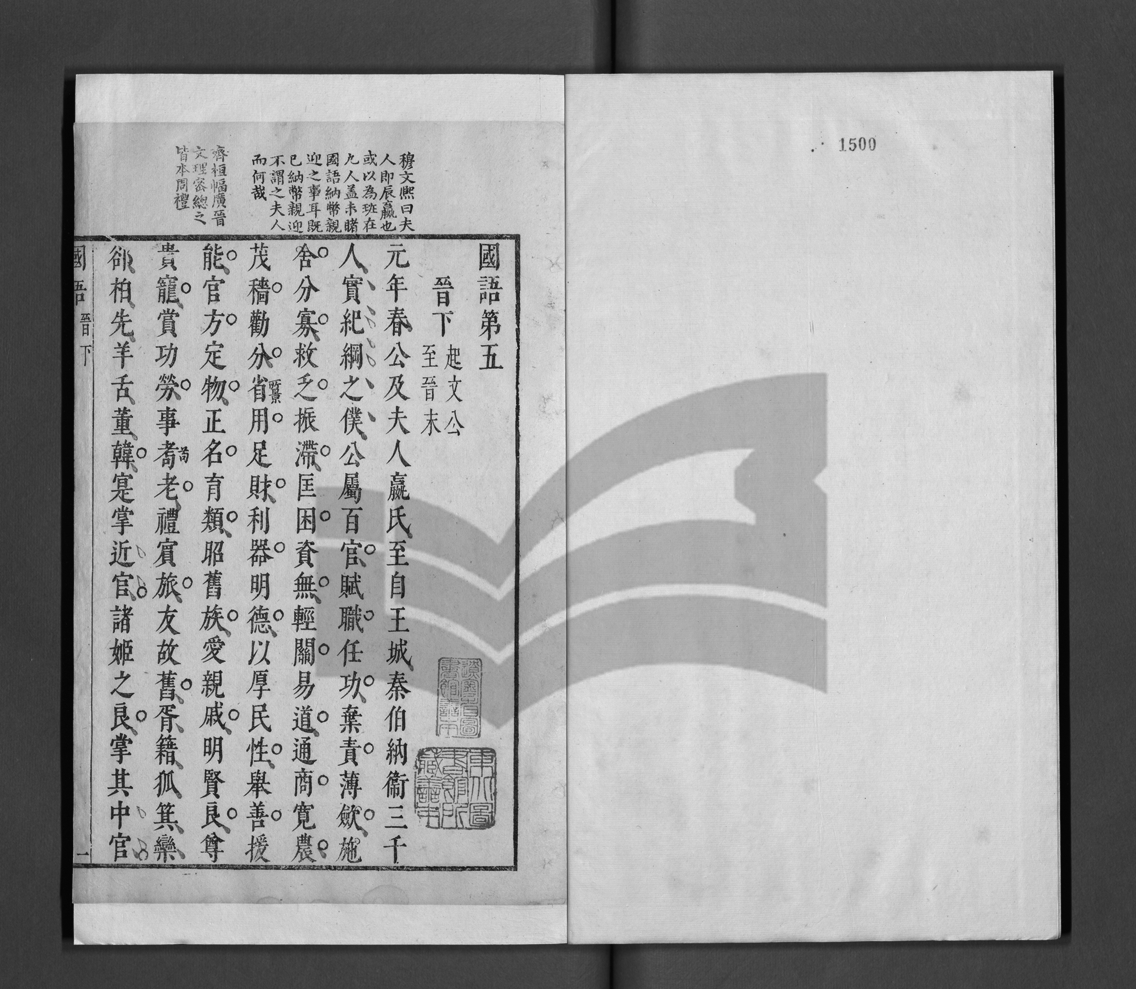 1500
穆文熈曰夫
人即辰嬴也
或以為班在
九人盖未睹
國語納幣親
迎之事耳既
已納幣親迎
不謂之夫人
而何哉
齊桓幅廣晉
文理密總之
皆本周禮
國語第五
晉下
起文公
至晉末
元年春公及夫人嬴氏至自王城秦伯納衞三千
人實紀綱之僕公屬百官賦職任功棄責薄斂施
舍分寡救乏振滯匡困資無輕關易道通商寬農
茂穡勸分省用足財利器明德以厚民性舉善援
能官方定物正名育類昭舊族愛親戚明賢良尊
貴寵賞功勞事耈老禮賓旅友故舊胥籍狐箕欒
郤柏先羊舌董韓寔掌近官諸姬之良掌其中官
國語 晉下 一